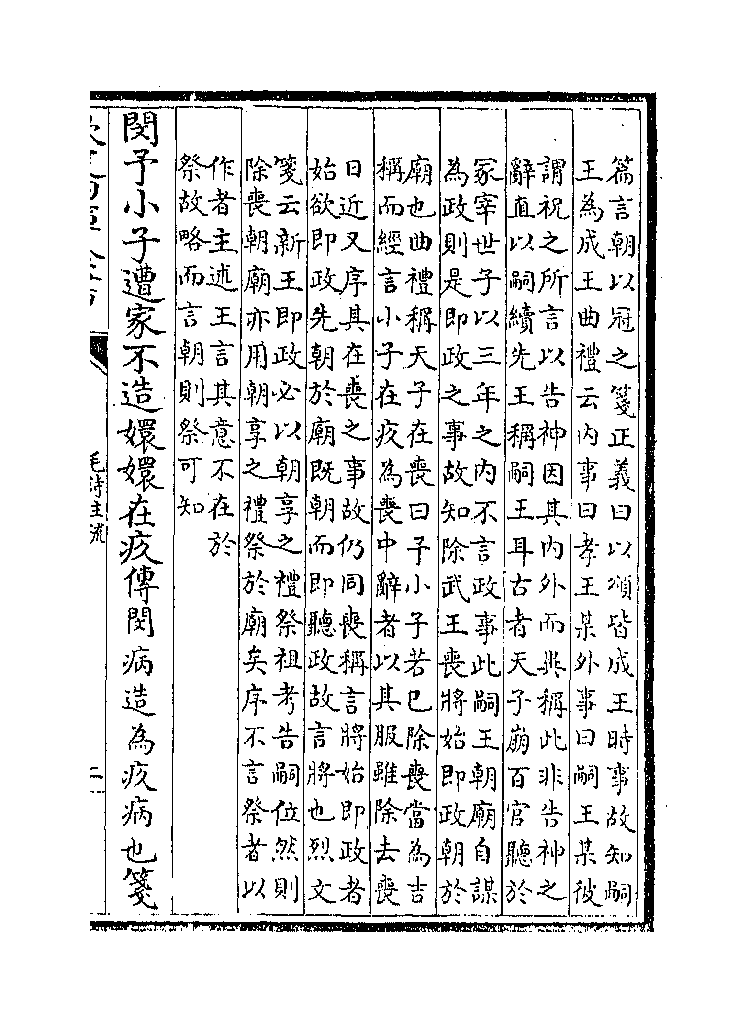 篇言朝以冠之箋正義曰以頌皆成王時事故知嗣
王為成王曲禮云内事曰孝王某外事曰嗣王某彼
謂祝之所言以告神因其内外而異稱此非告神之
辭直以嗣續先王稱嗣王耳古者天子崩百官聽於
冢宰世子以三年之内不言政事此嗣王朝廟自謀
為政則是即政之事故知除武王喪將始即政朝於
廟也曲禮稱天子在喪曰予小子若已除喪當為吉
稱而經言小子在疚為喪中辭者以其服雖除去喪
日近又序其在喪之事故仍同喪稱言將始即政者
始欲即政先朝於廟既朝而即聽政故言將也烈文
箋云新王即政必以朝享之禮祭祖考告嗣位然則
除喪朝廟亦用朝享之禮祭於廟矣序不言祭者以
作者主述王言其意不在於
祭故略而言朝則祭可知
閔予小子遭家不造嬛嬛在疚傳閔病造為疚病也箋
毛詩注疏
二